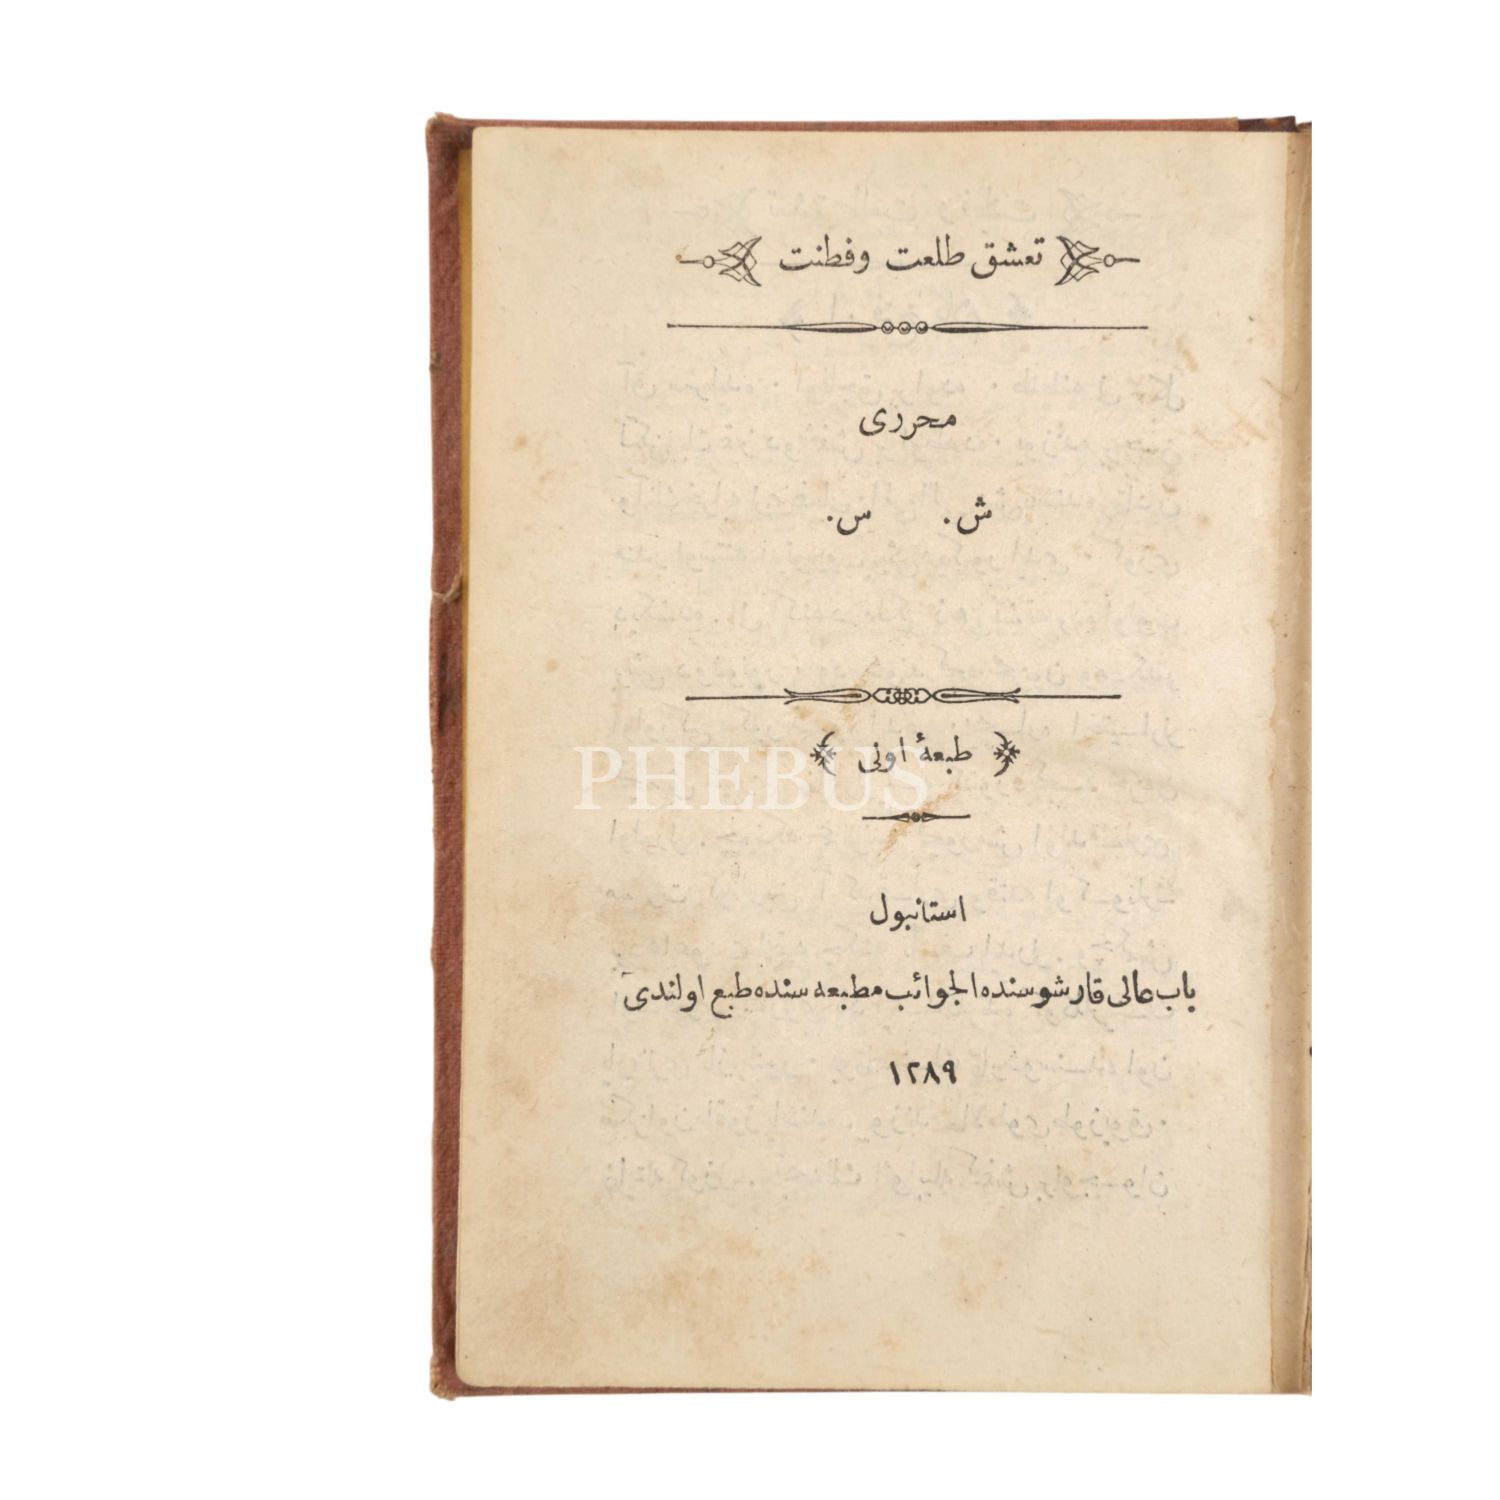 تعشق طلعت وفطنت
محرری
ش. س.
طبعهٔ اولی
PHEBUS
استانبول
باب عالی قارشوسنده الجوائب مطبعه سنده طبع اولندی
١٢٨٩